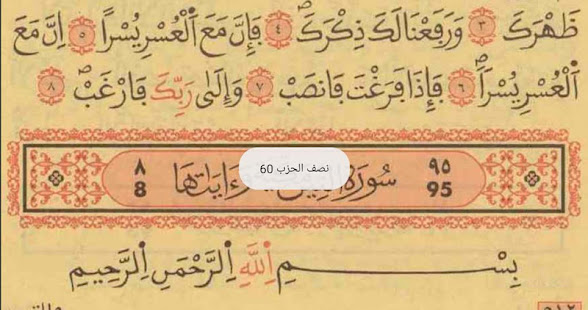 ظَهْرَكَ ٣ وَرَفَعْنَا لَكَ ذِكْرَكَ ٤ فَإِنَّ مَعَ اَ۬لْعُسْرِ يُسْراً ٥ اِنَّ مَعَ
اَ۬لْعُسْرِ يُسْراٗۖ ٦ فَإِذَا فَرَغْتَ فَانصَبْ ٧ وَإِلَىٰ رَبِّكَ فَارْغَبۖ ٨
٩٥ 95 سُورَةُ ءَايَاتُهَا ٨ 8
نصف الحزب 60
بِسْمِ اِ۬للَّهِ اِ۬لرَّحْمَٰنِ اِ۬لرَّحِيمِ